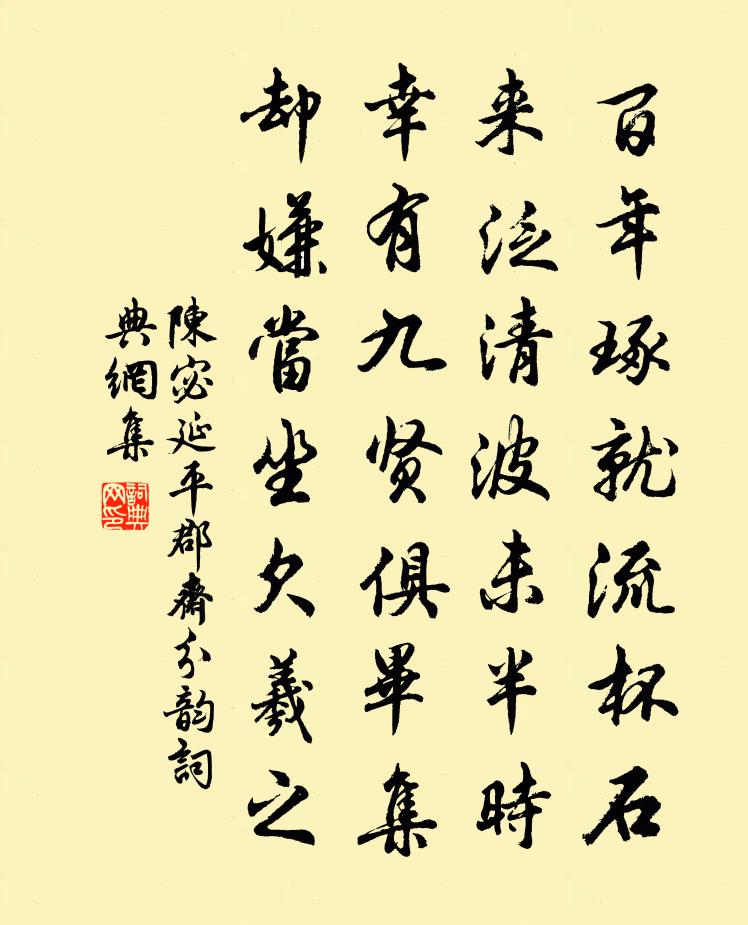 百年琢就流杯石
来泛清波未半时
幸有九贤俱畢集
却嫌當坐欠羲之
陳宓延平郡齋分韵詞
典網集
詞典網印